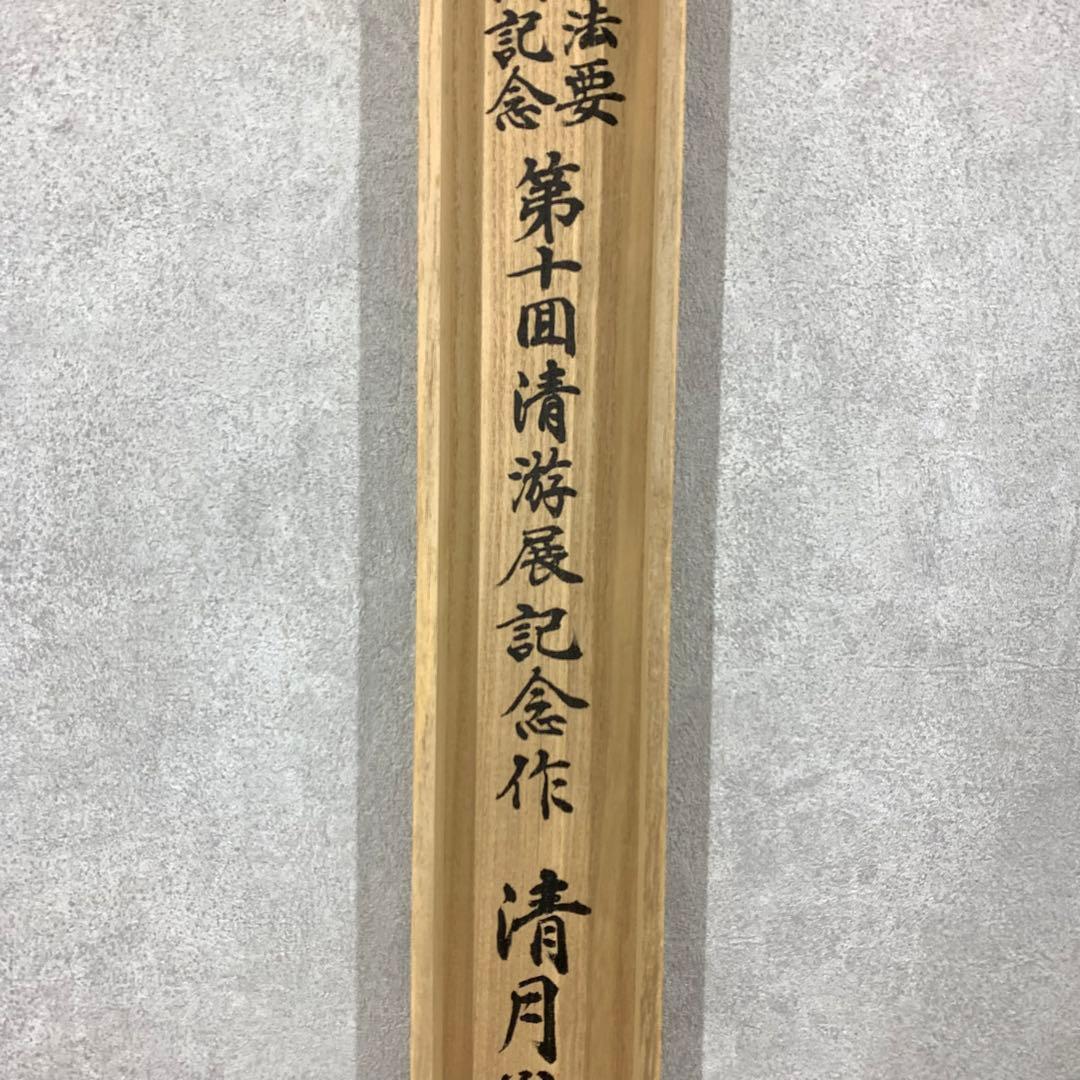 法要
記念
第十回清游展記念作
清月